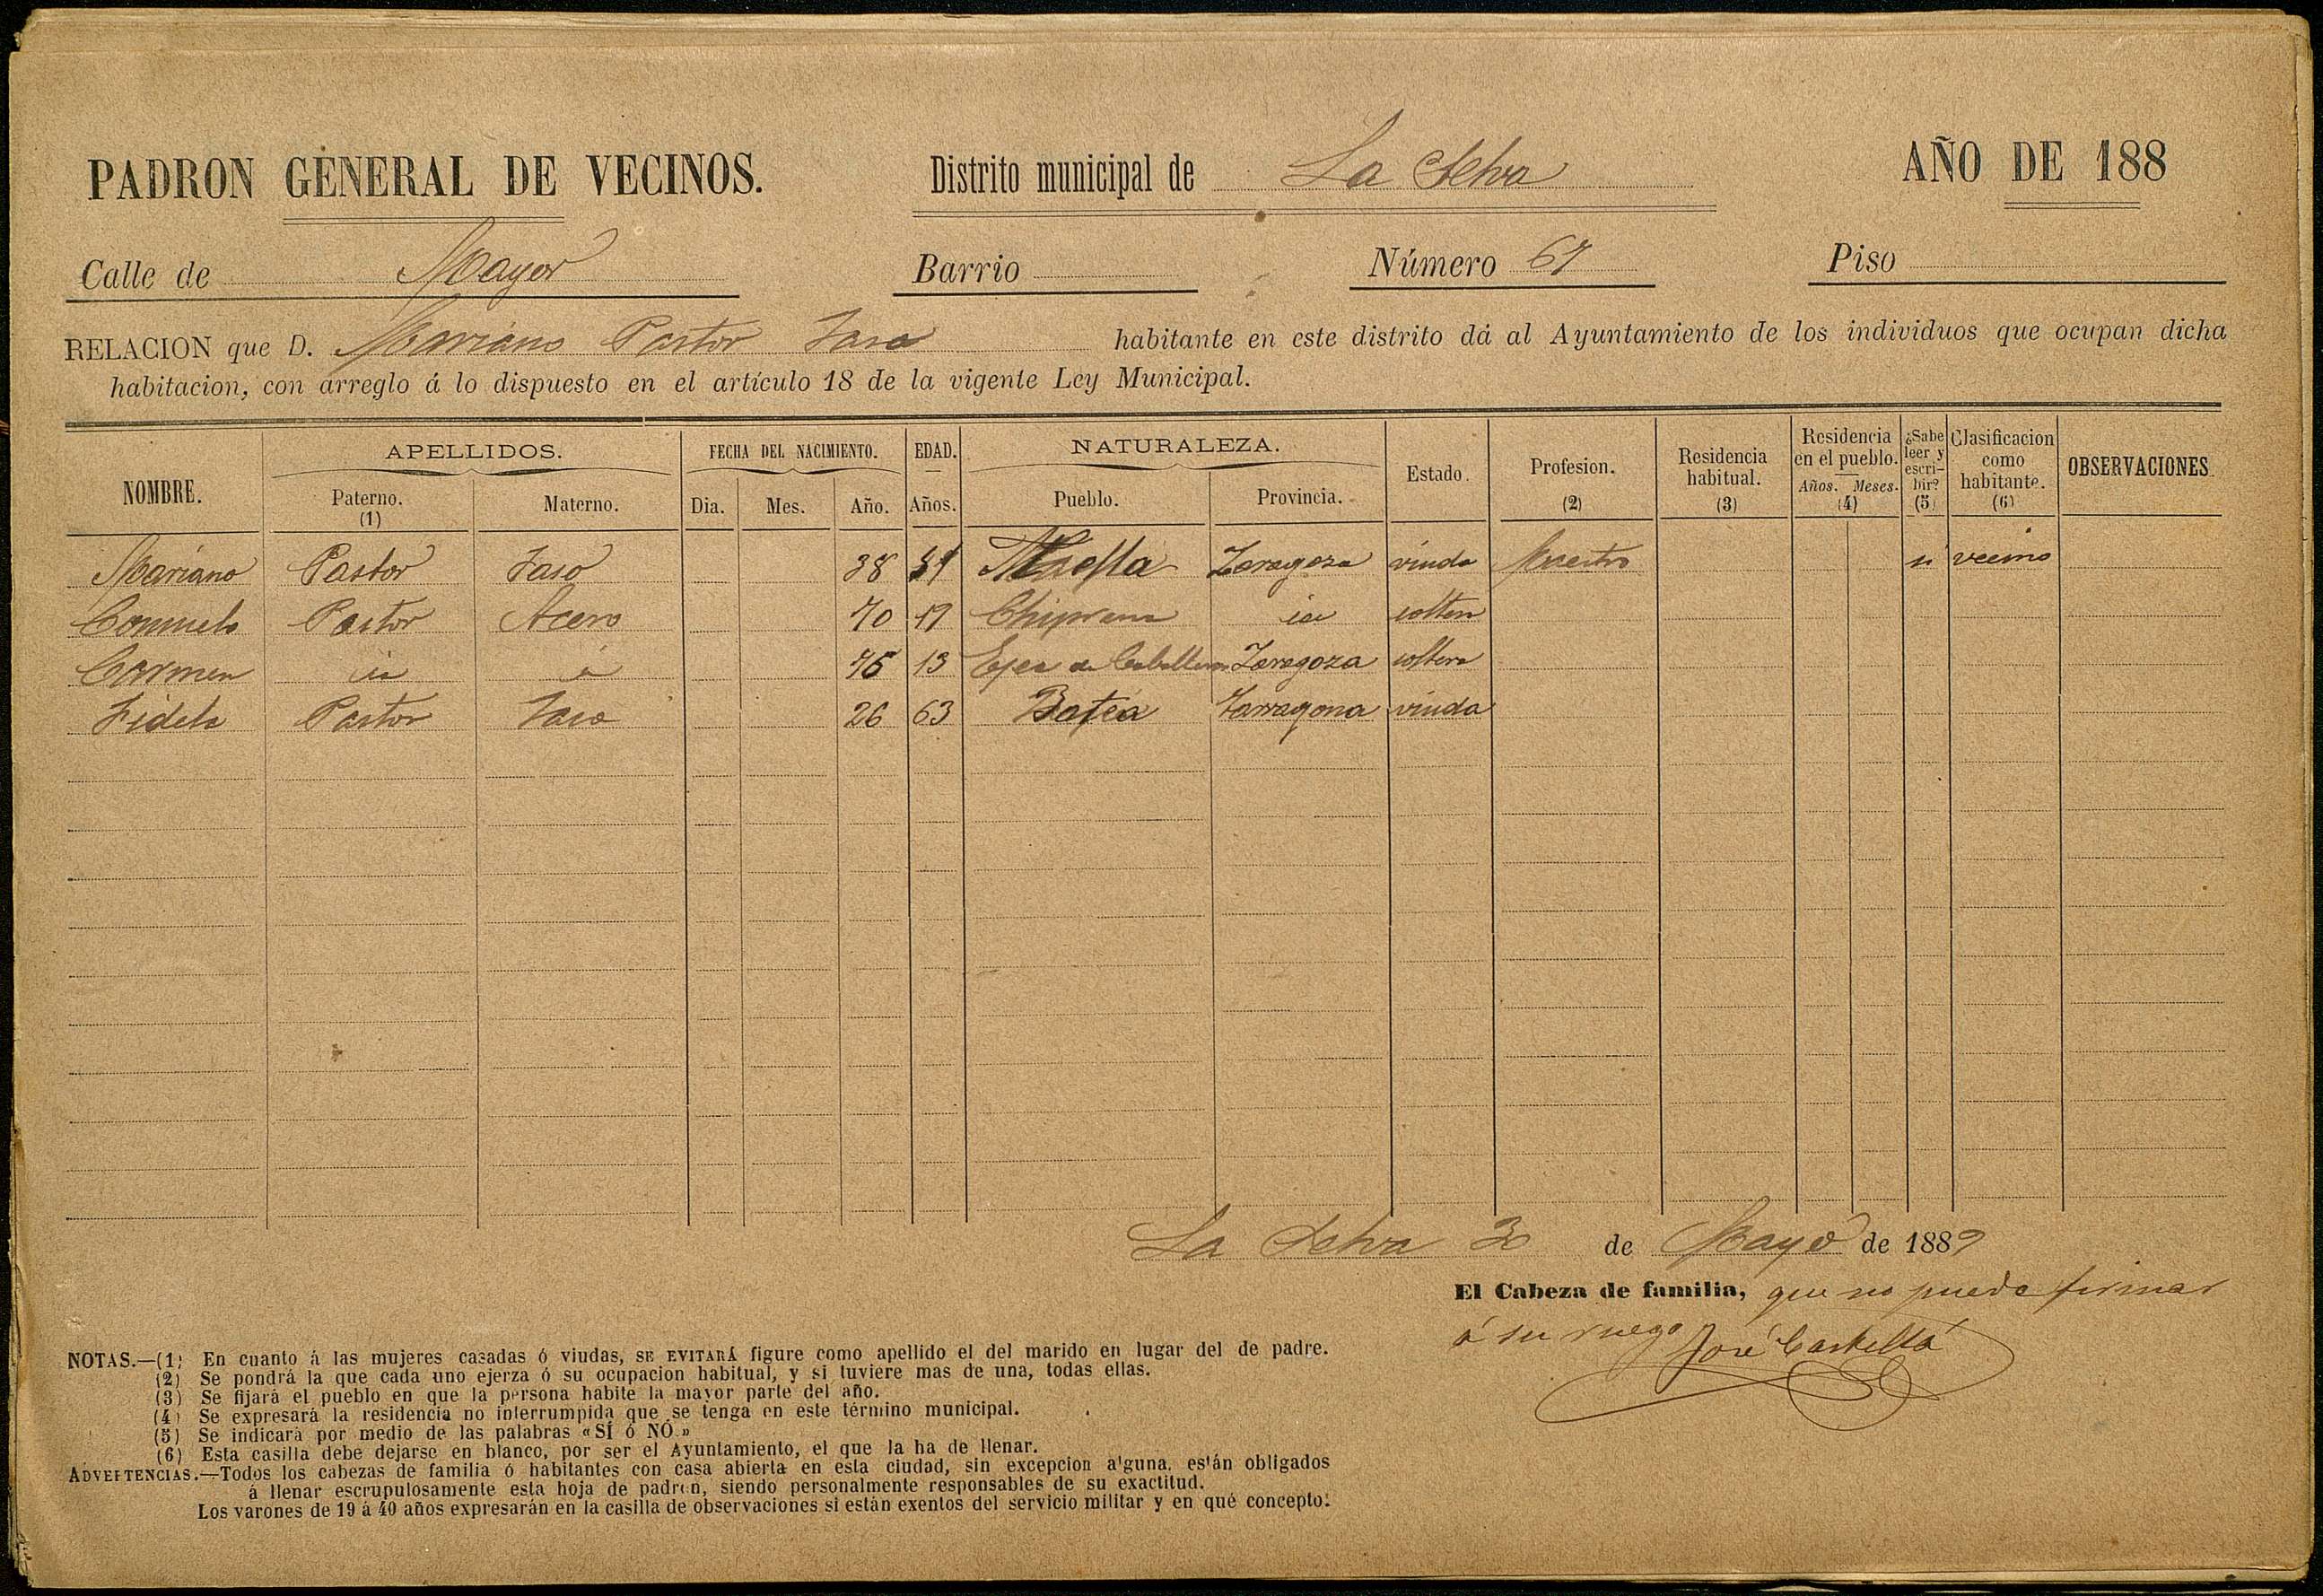 PADRON GENERAL DE VECINOS. Distrito municipal de La Selva AÑO DE 188
Calle de Mayor Barrio Número 67 Piso
RELACION que D. Mariano Pastor Jaso habitante en este distrito dá al Ayuntamiento de los individuos que ocupan dicha
habitacion, con arreglo á lo dispuesto en el artículo 18 de la vigente Ley Municipal.
NOMBRE. APELLIDOS. Paterno. (1) Materno. FECHA DEL NACIMIENTO. Dia. Mes. Año. EDAD. Años. NATURALEZA. Pueblo. Provincia. Estado. Profesion. (2) Residencia habitual. (3) Residencia en el pueblo. Años. Meses. (4) ¿Sabe leer y escribir? (5) Clasificacion como habitante. (6) OBSERVACIONES.
Mariano Pastor Jaso 38 51 Maella Zaragoza viudo Maestro si vecino
Consuelo Pastor Acero 70 19 Chiprana id soltera
Carmen id id 76 13 Ejea de Caballeros Zaragoza soltera
Fidela Pastor Jaso 26 63 Batea Tarragona viuda
La Selva 30 de Mayo de 1889
El Cabeza de familia, que no puede firmar
á su ruego José Castellá
NOTAS.—(1) En cuanto á las mujeres casadas ó viudas, SE EVITARÁ figure como apellido el del marido en lugar del de padre.
(2) Se pondrá la que cada uno ejerza ó su ocupacion habitual, y si tuviere mas de una, todas ellas.
(3) Se fijará el pueblo en que la persona habite la mayor parte del año.
(4) Se expresará la residencia no interrumpida que se tenga en este término municipal.
(5) Se indicará por medio de las palabras «SÍ ó NÓ.»
(6) Esta casilla debe dejarse en blanco, por ser el Ayuntamiento, el que la ha de llenar.
ADVERTENCIAS.—Todos los cabezas de familia ó habitantes con casa abierta en esta ciudad, sin excepcion alguna, están obligados
á llenar escrupulosamente esta hoja de padron, siendo personalmente responsables de su exactitud.
Los varones de 19 á 40 años expresarán en la casilla de observaciones si están exentos del servicio militar y en qué concepto.